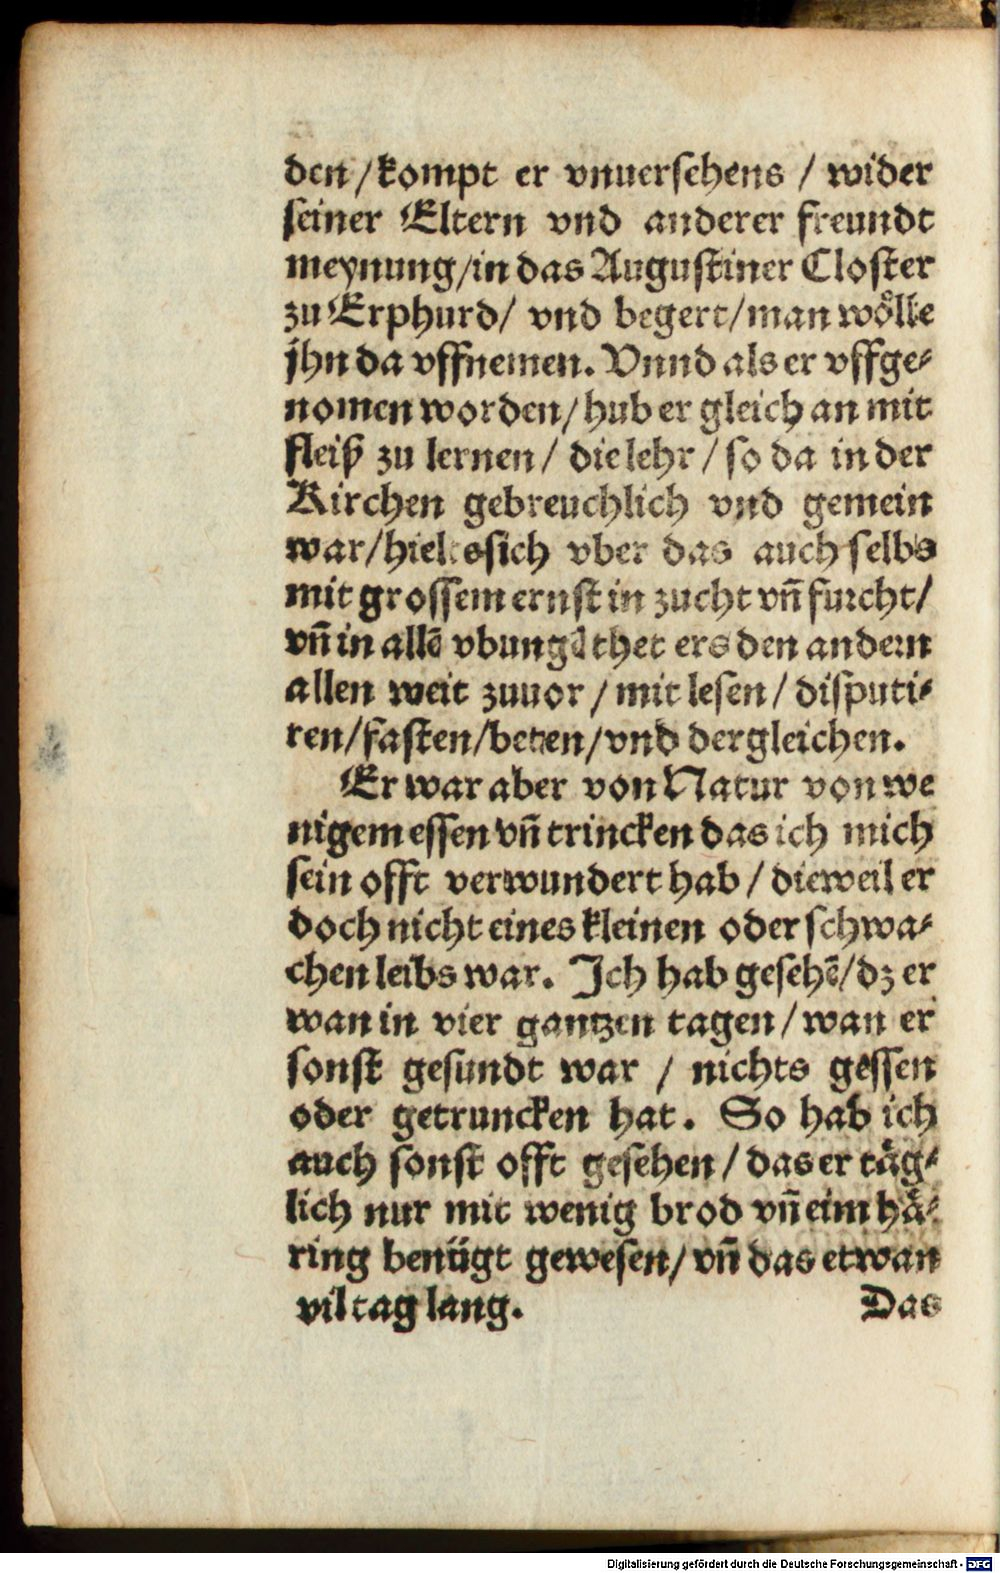 den / kompt er vnuersehens / wider
seiner Eltern vnd anderer freundt
meynung / in das Augustiner Closter
zu Erphurd / vnd begert / man wölle
jhn da vffnemen. Vnnd als er vffge⸗
nomen worden / hub er gleich an mit
fleiß zu lernen / die lehr / so da in der
Kirchen gebreuchlich vnd gemein
war / hielt sich vber das auch selbs
mit grossem ernst in zucht vñ furcht /
vñ in allẽ vbungẽ thet ers den andern
allen weit zuuor / mit lesen / disputi⸗
ren / fasten / beten / vnd dergleichen.
Er war aber von Natur von we
nigem essen vñ trincken das ich mich
sein offt verwundert hab / dieweil er
doch nicht eines kleinen oder schwa⸗
chen leibs war. Ich hab gesehẽ / dz er
wan in vier gantzen tagen / wan er
sonst gesundt war / nichts gessen
oder getruncken hat. So hab ich
auch sonst offt gesehen / das er täg⸗
lich nur mit wenig brod vñ eim hä⸗
ring benügt gewesen / vñ das etwan
vil tag lang. Das
Digitalisierung gefördert durch die Deutsche Forschungsgemeinschaft - DFG